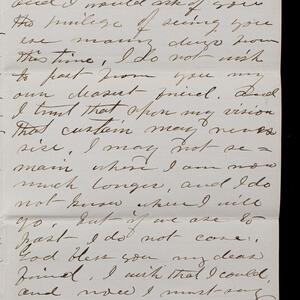 and I would ask of you
the privilege of seeing you
ere many days from
this time, I do not wish
to part from you my
own dearest friend. And
I trust that upon my vision
that curtain may never
rise, I may not re=
main where I am now
much longer, and I do
not know where I will
go, but if we are to
part I do not care,
God bless you my dear
friend, I wish that I could,
and now I must say